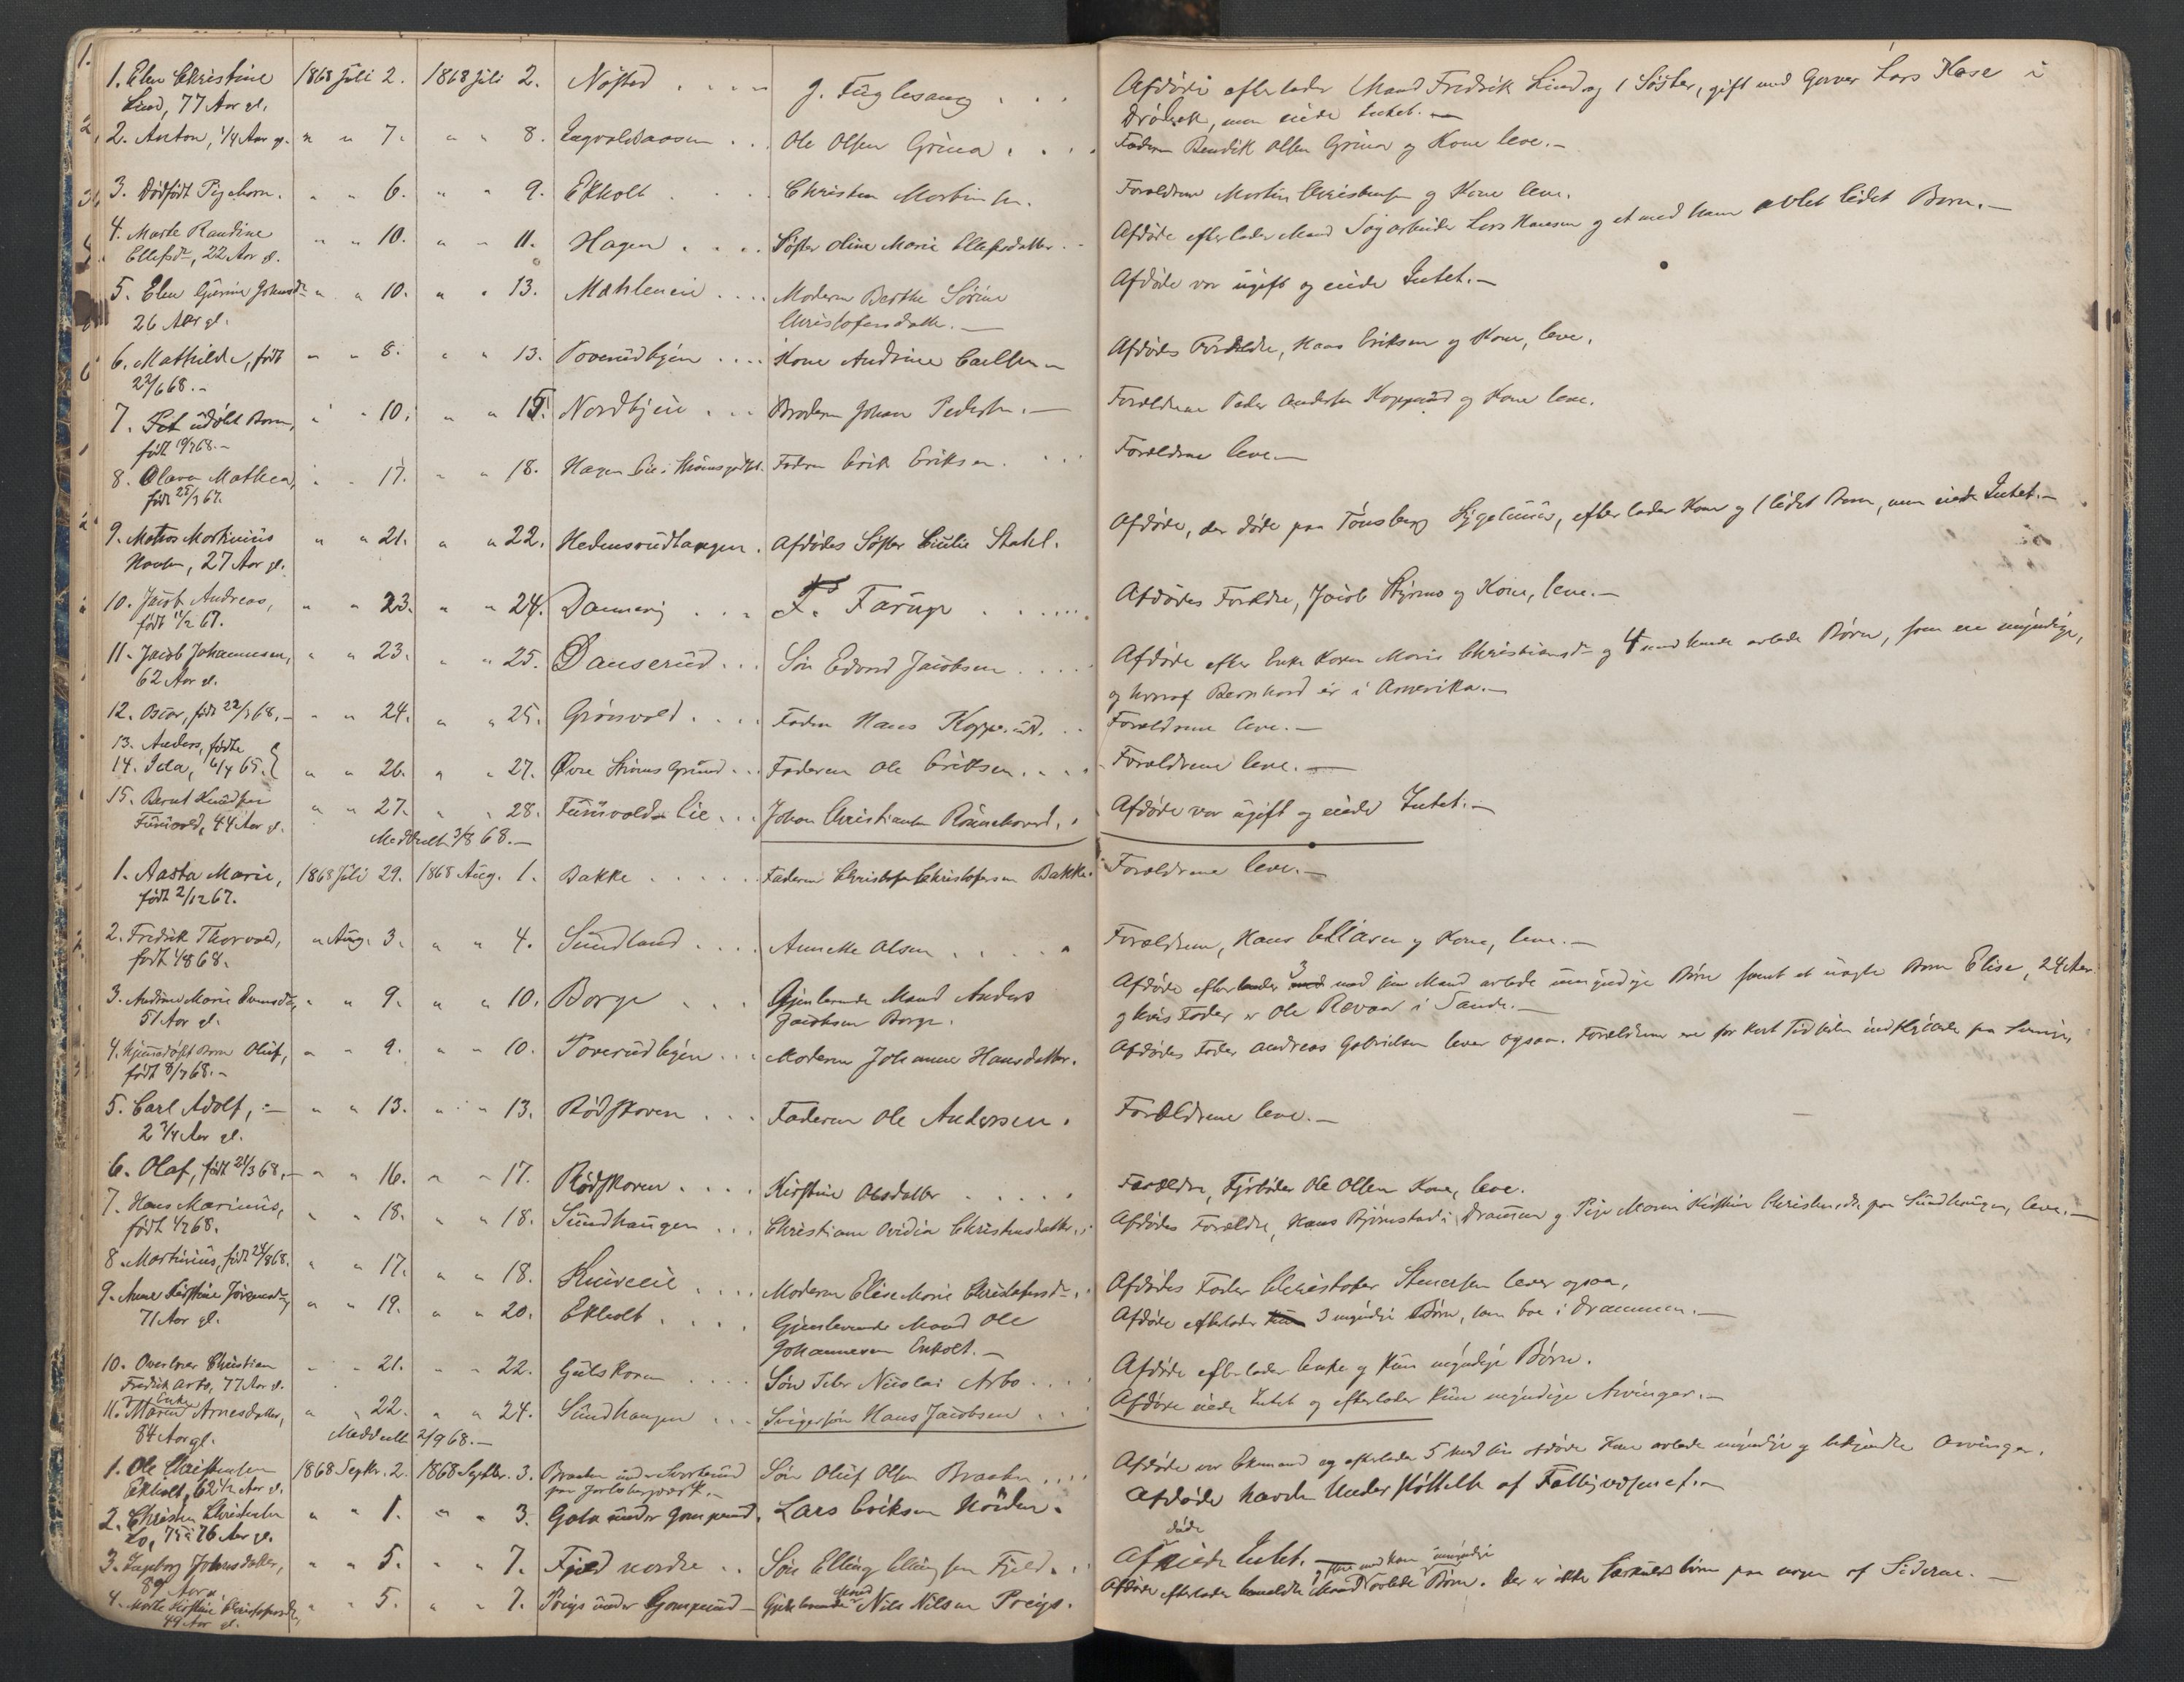 1. Elen Christine 1868 Juli 2. 1868 Juli 2. Nøsted J. Fuglesang Afdøde efterlader Mand Fredrik Lind og 1 Søster, gift med Garver Lars Hase i
Lind, 77 Aar gl. Drøbak, men eiede Intet.
2. Anton, 1/4 Aar g. " " 7. " " 8. Ingvoldsaasen Ole Olsen Grina Faderen Bendik Olsen Grina og Kone leve.
3. Dødfødt Pigebarn. " " 6. " " 9. Ekholt Christen Martinsen. Forældrene Martin Christensen og Kone leve.
4. Marte Randine " " 10. " " 11. Hagen Søster Oline Marie Ellefsdatter Afdøde efterlader Mand Sagarbeider Lars Hansen og et med ham avlet lidet Barn.
Ellefsdr, 22 Aar gl.
5. Elen Gurine Johnsdr " " 10. " " 13. Mæhleneie Moderen Berthe Sørine Afdøde var ugift og eiede Intet.
26 Aar gl. Christofersdatter.
6. Mathilde, født " " 8. " " 13. Toverudbyen Kone Andrine Carlsen Afdødes Forældre, Hans Eriksen og Kone, leve.
22/6 68.
7. Et udøbt Barn, " " 10. " " 15. Nordbyeie Broderen Johan Pedersen. Forældrene Peder Andersen Kopperud og Kone leve.
født 10/7 68.
8. Olava Mathea, " " 17. " " 18. Hagen Eie i Strømsgodset. Faderen Erik Eriksen. Forældrene leve.
født 25/9 67.
9. Matros Martinius " " 21. " " 22. Hedensrudtangen. Afdødes Søster Emilie Stahl. Afdøde, der døde paa Tønsberg Sygehuus, efterlader Kone og 1 lidet Barn, men eiede Intet.
27 Aar gl.
10. Jacob Andreas, " " 23. " " 24. Dannevig F. Farup Afdødes Forældre, Jacob Styrmo og Kone, leve.
født 11/2 67.
11. Jacob Johannesen, " " 23. " " 25. Danserud Søn Edvard Jacobsen Afdøde efter Enke Karen Marie Christiansdr og 4 med hende avlede Børn, som ere myndige,
62 Aar gl. og hvoraf Bernhard er i Amerika.
12. Oscar, født 22/7 68. " " 24. " " 25. Grønvold Fader Hans Kopperud. Forældrene leve.
13. Anders, fødte
14. Ida, 6/4 65. } " " 26. " " 27. Øvre Strøms Grund Faderen Ole Eriksen. Forældrene leve.
15. Bernt Knudsen " " 27. " " 28. Furuvolds Eie Johan Christiansen Afdøde var ugift og eiede Intet.
Furuvold, 44 Aar gl.
Meddeelt 3/8 68.
1. Aasta Marie, 1868 Juli 29. 1868 Aug. 1. Bakke Faderen Christofer Christofersen Bakke. Forældrene leve.
født 2/12 67.
2. Fredrik Thorvald, " Aug. 3. " " 4. Sundland Annette Olsen Forældrene, Hans Eliasen og Kone, leve.
født 1/8 68.
3. Andrine Marie " " 9. " " 10. Borge Gjenlevende Mand Anders Afdøde efterlader 3 med sin Mand avlede umyndige Børn samt et uægte Barn Elise, 24 Aar
51 Aar gl. Jacobsen Borge. og hvis Fader er Ole Revaa i Sande.
4. Hjemmedøbt Barn Oluf, " " 9. " " 10. Toverudbyen Moderen Johanne Hansdatter. Afdødes Fader Andreas Gabrielsen lever ogsaa. Forældrene ere for kort Tid siden indflyttede fra
født 8/7 68.
5. Carl Adolf, " " 13. " " 13. Rødskoven Faderen Ole Andersen. Forældrene leve.
2 3/4 Aar gl.
6. Olaf, født 21/3 68. " " 16. " " 17. Rødskoven Kirstine Olsdatter Forældre, Fyrbøder Ole Olsen Kone, leve.
7. Hans Marinius, " " 18. " " 18. Sundhaugen Christiane Ovidia Christensdatter Afdødes Forældre, Hans Bjørnstad i Drammen og Pige Maren Kirstine paa Sundhaugen, leve.
født 4/2 68.
8. Martinius, født 24/8 68. " " 17. " " 18. Knive eie Moderen Elise Marie Christofersdr Afdødes Fader Christofer Stenersen lever ogsaa.
9. Anne Kirstine Jørgensdr " " 19. " " 20. Ekholt Gjenlevende Mand Ole Afdøde efterlader 3 myndige Børn, som boe i Drammen.
71 Aar gl. Johannesen Enholt.
10. Christian " " 21. " " 22. Gulskoven Søn Peter Nicolai Arbo Afdøde efterlader Enke og kun myndige Børn.
Fredrik Arbo, 77 Aar gl.
11. Enke Maren Arnesdatter, " " 22. " " 24. Sundhaugen Svigersøn Hans Jacobsen Afdøde eiede Intet og efterlader kun myndige Arvinger.
84 Aar gl. Meddeelt 2/9 68.
1. Ole Christensen 1868 Septbr. 2. 1868 Septbr. 3. Braaten under Søn Oluf Olsen Braaten Afdøde var Ekemand og efterlader 5 med sin afdøde Kone avlede myndige og bekjendte Arvinger.
Ekholt, 62 1/2 Aar gl. paa Jarlsbergværk.
2. Christen Christensen " " 1. " " 3. Gata under Gomperud. Lars Eriksen Nøiden. Afdøde havde Understøttelse af Fattigvæsenet.
Lo, 75 à 76 Aar gl.
3. Ingeborg Johnsdatter, " " 5. " " 7. Fjeld nordre Søn Elling Ellingsen Fjeld. Afdøde eiede Intet.
Aar
4. Marte Kirstine Christofersdr, " " 5. " " 7. Preigs under Gomperud Gjenlevende Mand Nils Nilsen Preigs. Afdøde efterlader Mand og med ham avlede umyndige Børn. Der er ikke Særkuldsbørn paa nogen af Siderne.
49 Aar gl.